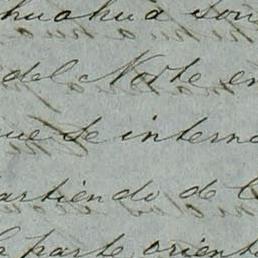 huahua son
del Norte en
que se interna
artiendo de C
a parte orient